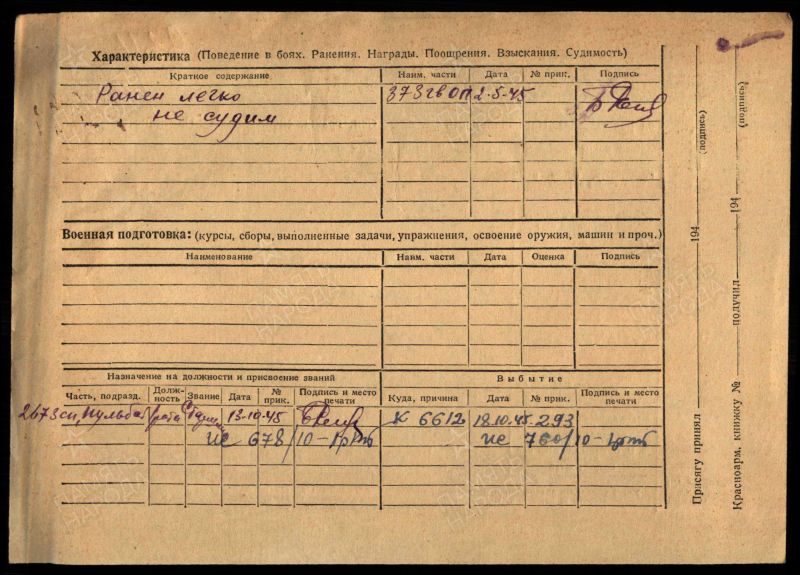 Характеристика (Поведение в боях. Ранения. Награды. Поощрения. Взыскания. Судимость)
Краткое содержание Наим. части Дата № прик. Подпись
Ранен легко 373 гв ОП 2-5-45
не судим
Военная подготовка: (курсы, сборы, выполненные задачи, упражнения, освоение оружия, машин и проч.)
Наименование Наим. части Дата Оценка Подпись
Назначение на должности и присвоение званий Выбытие
Часть, подразд. Должность Звание Дата № прик. Подпись и место печати Куда, причина Дата № прик. Подпись и место печати
267 зсп, пульбат рота 13-10-45 К 6612 18.10.45 293
ИС 678/10- ИС 760/10-
Присягу принял 194 (подпись)
Красноарм. книжку № получил 194 (подпись)
ПАМЯТЬ НАРОДА